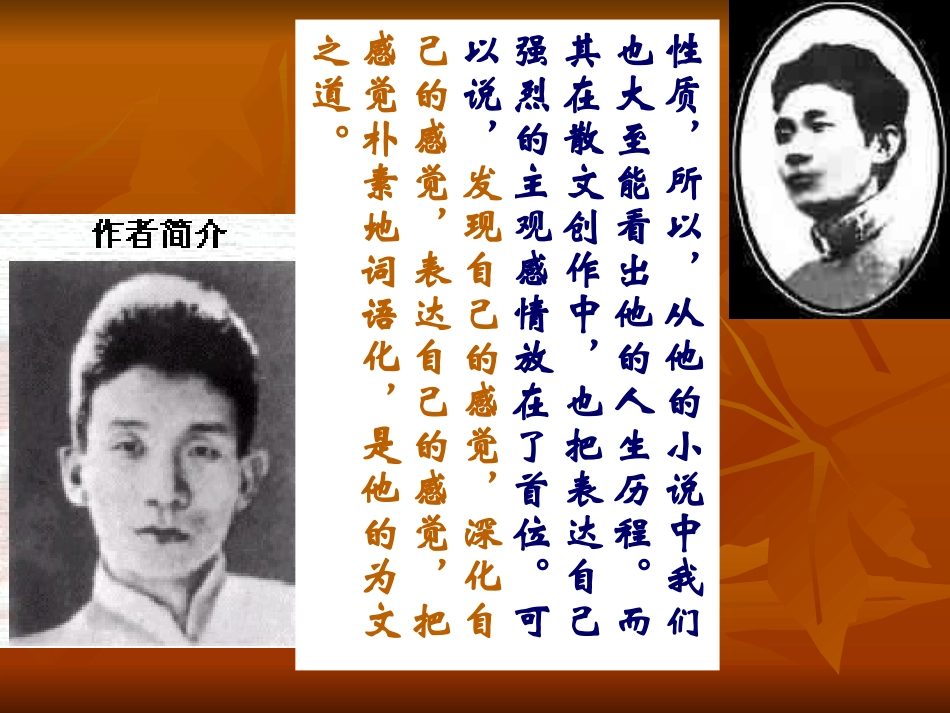 作者简介
性质，所以，从他的小说中我们
也大至能看出他的人生历程。而
其在散文创作中，也把表达自己
强烈的主观感情放在了首位。可
以说，发现自己的感觉，深化自
己的感觉，表达自己的感觉，把
感觉朴素地词语化，是他的为文
之道。